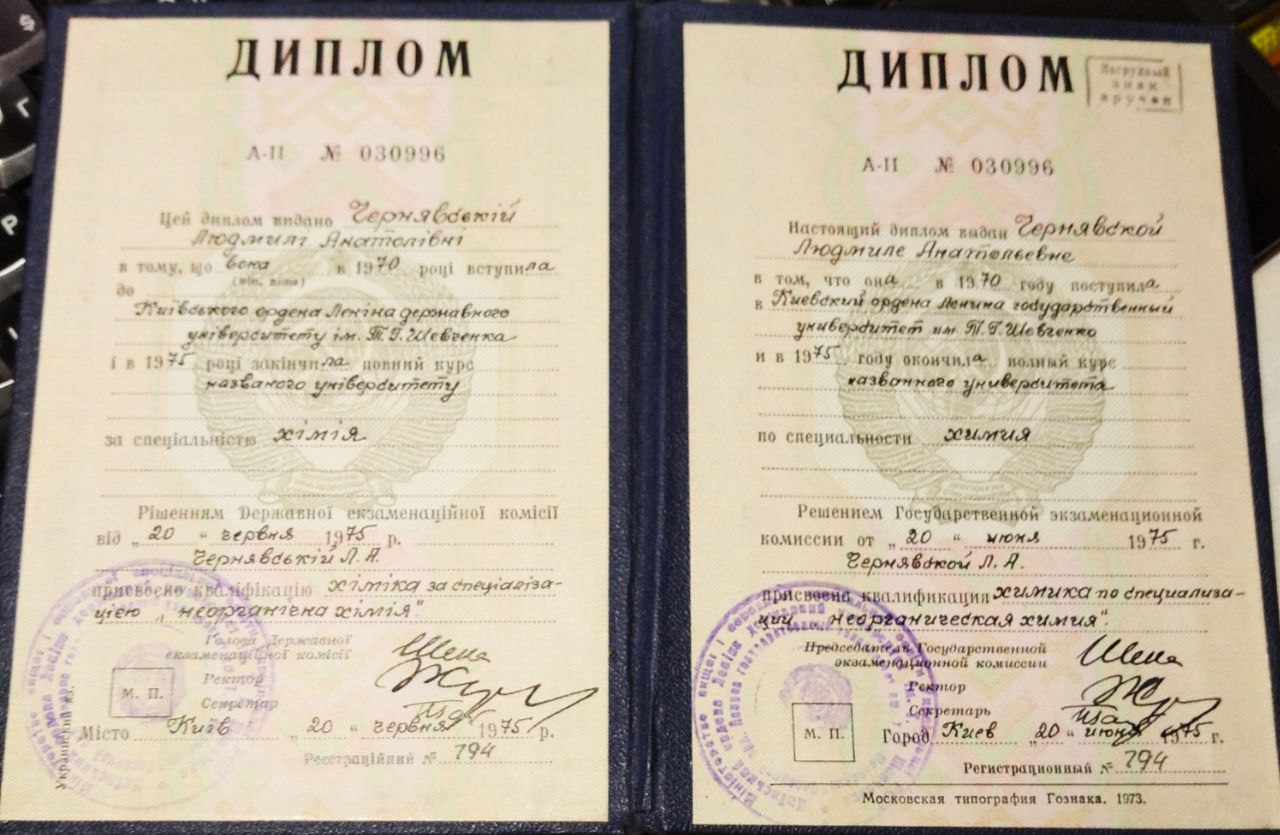 ДИПЛОМ
А-II № 030996
Цей диплом видано Чернявській
Людмилі Анатолівні
в тому, що вона в 1970 році вступила
(він, вона)
до
Київського ордена Леніна державного
університету ім. Т.Г. Шевченка
і в 1975 році закінчила повний курс
названого університету
за спеціальністю хімія
Рішенням Державної екзаменаційної комісії
від „20“ червня 1975 р.
Чернявській Л. А.
присвоєно квалифікацію хіміка за спеціаліза-
цією „неорганічна хімія".
Голова Державної
екзаменаційної комісії
Ректор
Секретар
М. П.
Місто Київ „20“ червня 1975 р.
Реєстраційний № 794
Украинский яз.
ДИПЛОМ
Нагрудный
знак
вручен
А-II № 030996
Настоящий диплом выдан Чернявской
Людмиле Анатольевне
в том, что она в 1970 году поступила
в Киевский ордена Ленина государственный
университет им. Т.Г. Шевченко
и в 1975 году окончила полный курс
названного университета
по специальности химия
Решением Государственной экзаменационной
комиссии от „20“ июня 1975 г.
Чернявской Л. А.
присвоена квалификация химика по специализа-
ции „неорганическая химия".
Председатель Государственной
экзаменационной комиссии
Ректор
Секретарь
М. П.
Город Киев „20“ июня 1975 г.
Регистрационный № 794
Московская типография Гознака. 1973.